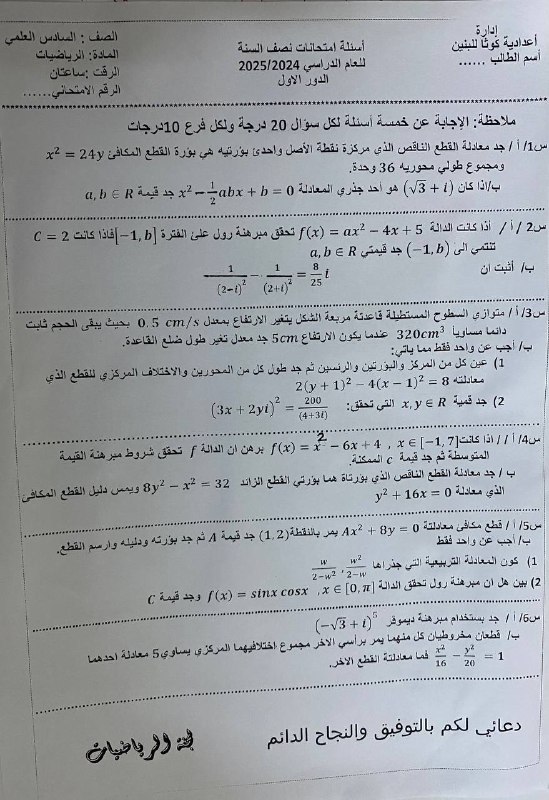 إدارة
أعدادية كوثا للبنين
أسم الطالب ......
أسئلة امتحانات نصف السنة
للعام الدراسي 2025/2024
الدور الاول
الصف : السادس العلمي
المادة: الرياضيات
الوقت :ساعتان
الرقم الامتحاني......
ملاحظة: الإجابة عن خمسة أسئلة لكل سؤال 20 درجة ولكل فرع 10درجات
س1/ أ / جد معادلة القطع الناقص الذي مركزة نقطة الأصل واحدئ بؤرتيه هي بؤرة القطع المكافئ x² = 24y
ومجموع طولي محوريه 36 وحدة.
ب/اذا كان (√3 + i) هو أحد جذري المعادلة x² − 1/2 abx + b = 0 جد قيمة a, b ∈ R
س2 / أ / اذا كانت الدالة f(x) = ax² − 4x + 5 تحقق مبرهنة رول علئ الفترة [−1, b] فاذا كانت C = 2
تنتمي الى (−1, b) جد قيمتي a, b ∈ R
ب/ أثبت ان 1/(2−i)² − 1/(2+i)² = 8/25 i
س3/ أ / متوازي السطوح المستطيلة قاعدتة مربعة الشكل يتغير الارتفاع بمعدل 0.5 cm/s بحيث يبقى الحجم ثابت
دائما مساوياً 320cm³ عندما يكون الارتفاع 5cm جد معدل تغير طول ضلع القاعدة.
ب/ أجب عن واحد فقط مما يأتي:
1) عين كل من المركز والبؤرتين والرئسين ثم جد طول كل من المحورين والاختلاف المركزي للقطع الذي
معادلته 2(y + 1)² − 4(x − 1)² = 8
2) جد قمية x, y ∈ R التي تحقق: (3x + 2yi)² = 200/(4+3i)
س4/ أ / اذا كانت f(x) = x² − 6x + 4 , x ∈ [−1, 7] برهن ان الدالة f تحقق شروط مبرهنة القيمة
المتوسطة ثم جد قيمة c الممكنة.
ب / جد معادلة القطع الناقص الذي بؤرتاة هما بؤرتي القطع الزائد 8y² − x² = 32 ويمس دليل القطع المكافئ
الذي معادلة y² + 16x = 0
س5/ أ / قطع مكافئ معادلتة Ax² + 8y = 0 يمر بالنقطة (1, 2) جد قيمة A ثم جد بؤرته ودليله وارسم القطع.
ب/ أجب عن واحد فقط
1) كون المعادلة التربيعية التي جذراها w/2−w² , w²/2−w
2) بين هل ان مبرهنة رول تحقق الدالة f(x) = sinx cosx , x ∈ [0, π] وجد قيمة C
س6/ أ / جد بستخدام مبرهنة ديموفر (−√3 + i)⁵
ب/ قطعان مخروطيان كل منهما يمر برأسي الاخر مجموع اختلافيهما المركزي يساوي 5 معادلة احدهما
x²/16 − y²/20 = 1 فما معادلتة القطع الاخر.
دعائي لكم بالتوفيق والنجاح الدائم
لجنة الرياضيات